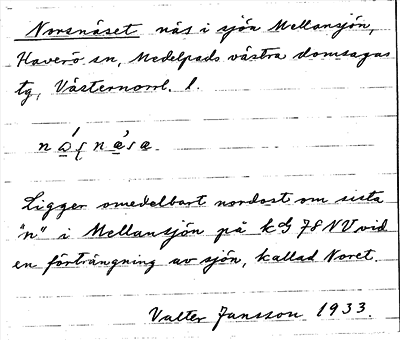 Norsnäset näs i sjön Mellansjön,
Haverö sn, Medelpads västra domsagas
tg, Västernorrl. l.
Ligger omedelbart nordost om sista
"n" i Mellansjön på kbl 78 NV vid
en förträngning av sjön, kallad Noret.
Valter Jansson 1933.